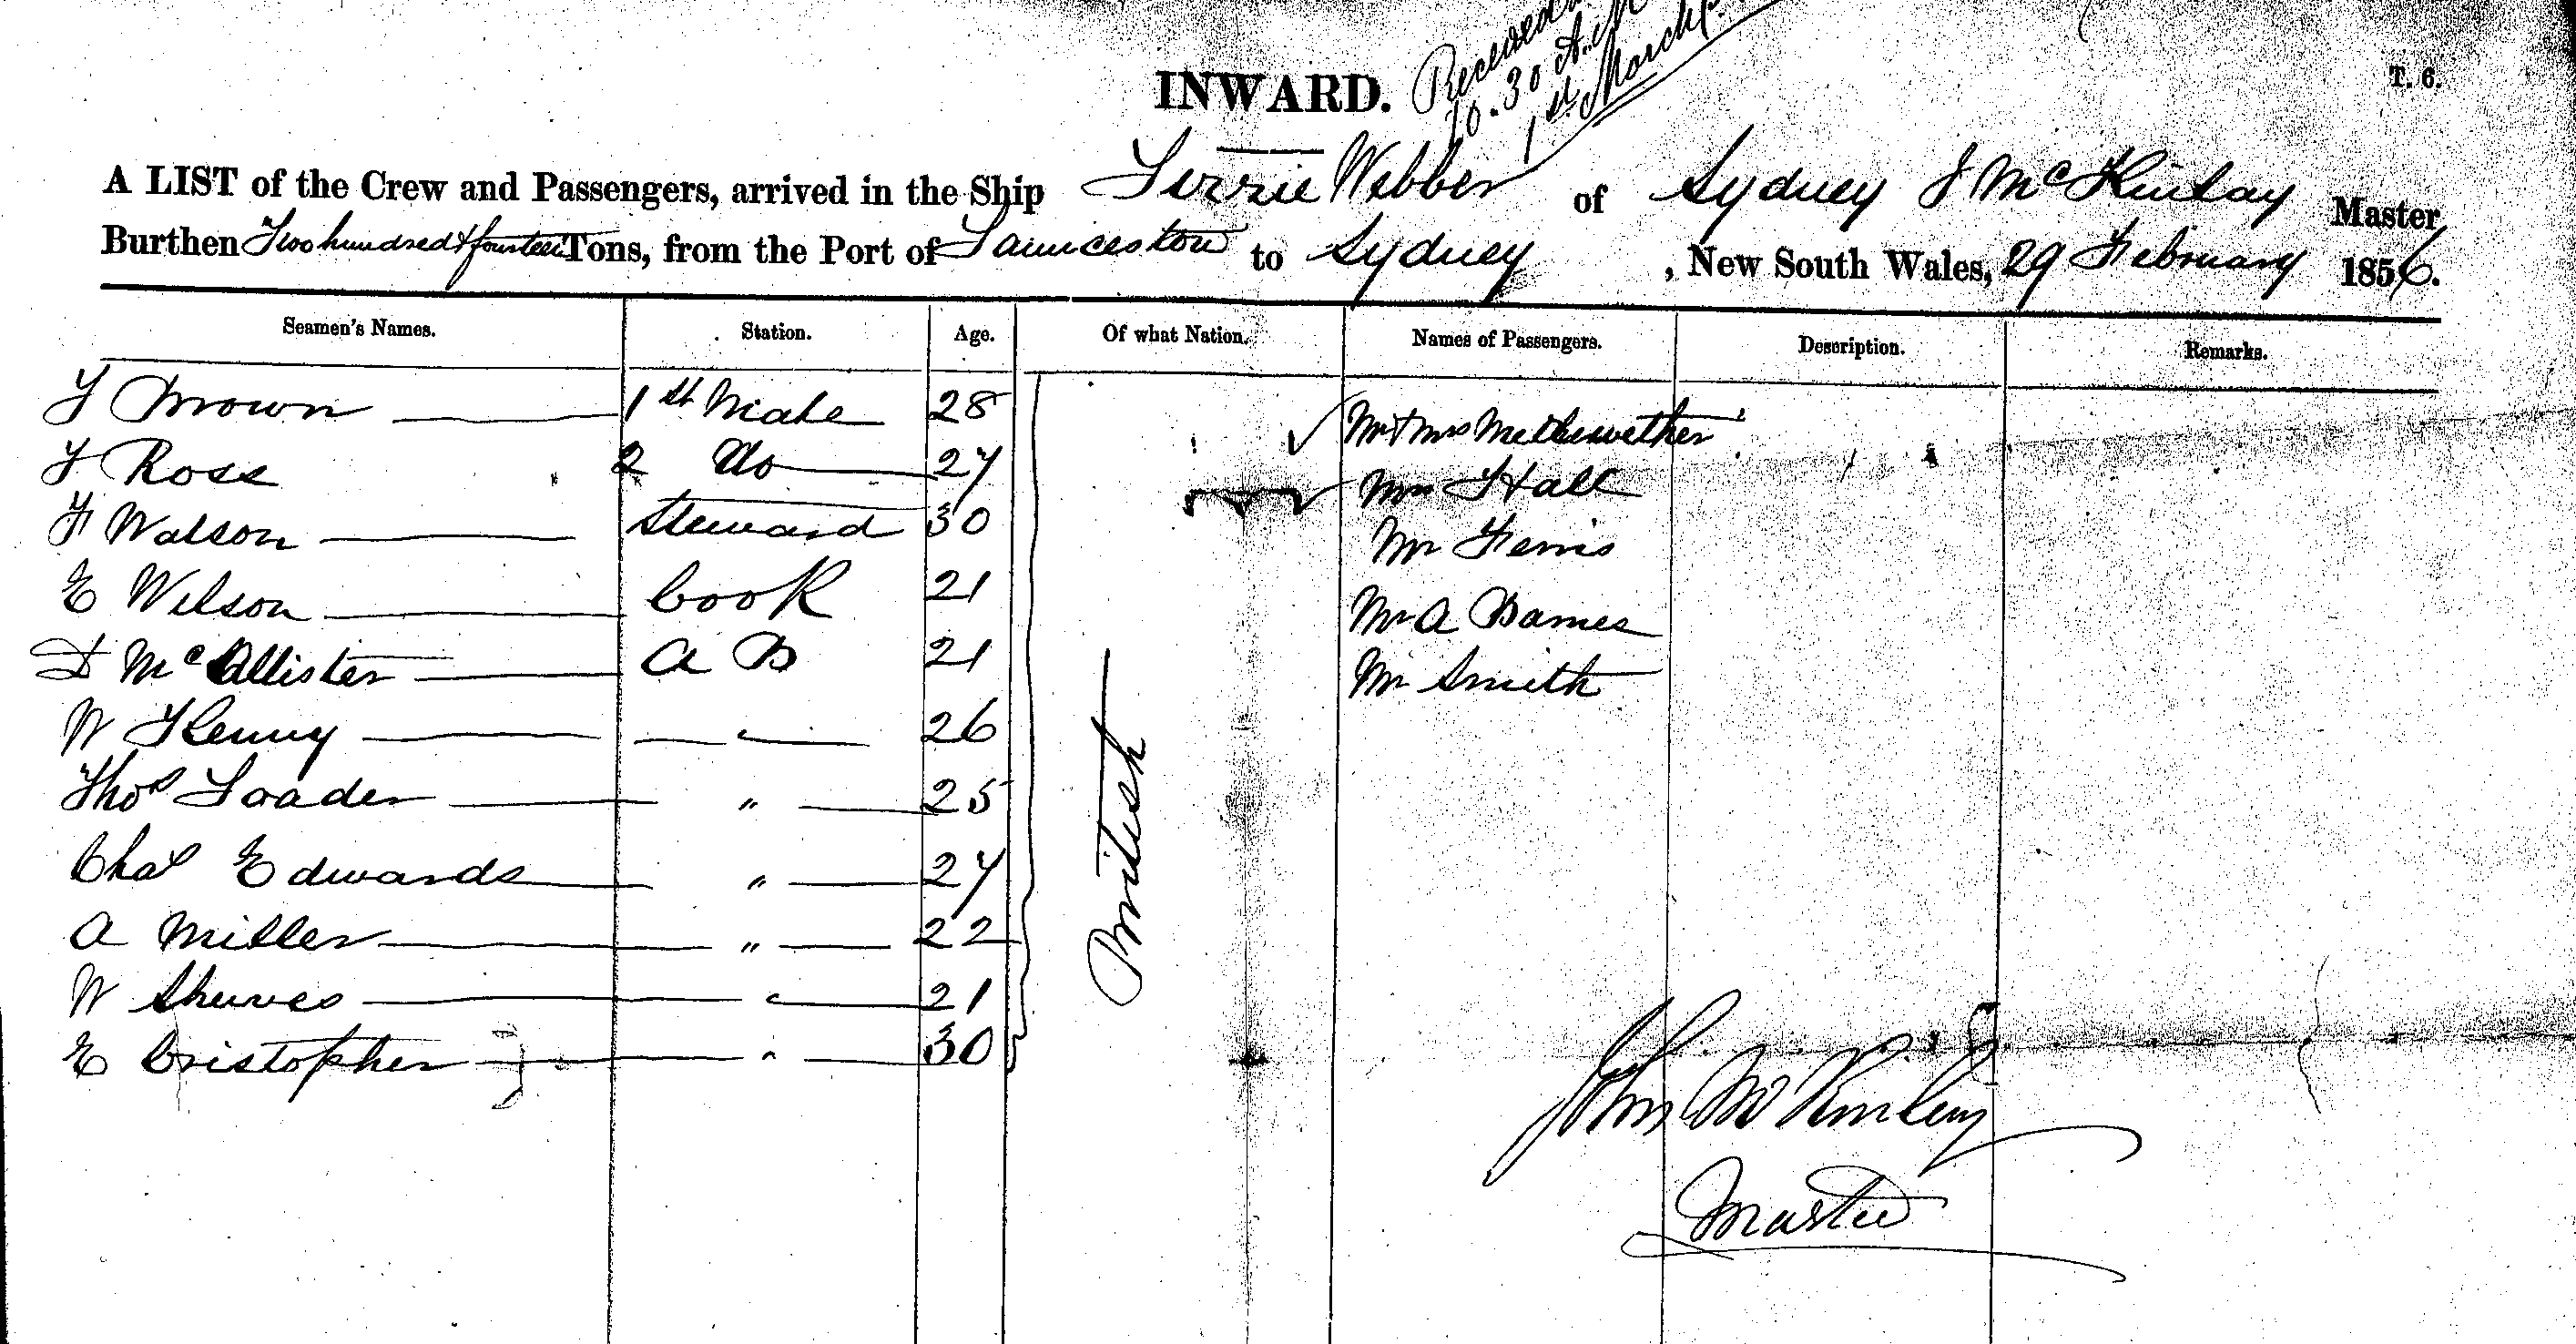 INWARD.
Received
10.30 A.M
1st March
T. 6.
A LIST of the Crew and Passengers, arrived in the Ship Lizzie Webber of Sydney J McKinlay Master
Burthen Two hundred & fourteen Tons, from the Port of Launceston to Sydney, New South Wales, 29 February 1856.
Seamen's Names. Station. Age. Of what Nation. Names of Passengers. Description. Remarks.
J Brown 1st Mate 28 Mr & Mrs
J Ross 2 Do 27 Mrs Hall
F Watson Steward 30 Mr
E Wilson Cook 21 Mr A Barnes
D McAllister A B 21 Mr Smith
W 26
Thos Loader " 25
Chas Edwards " 27
A Miller " 22
W " 21
E Cristopher " 30
British
John McKinlay
Master